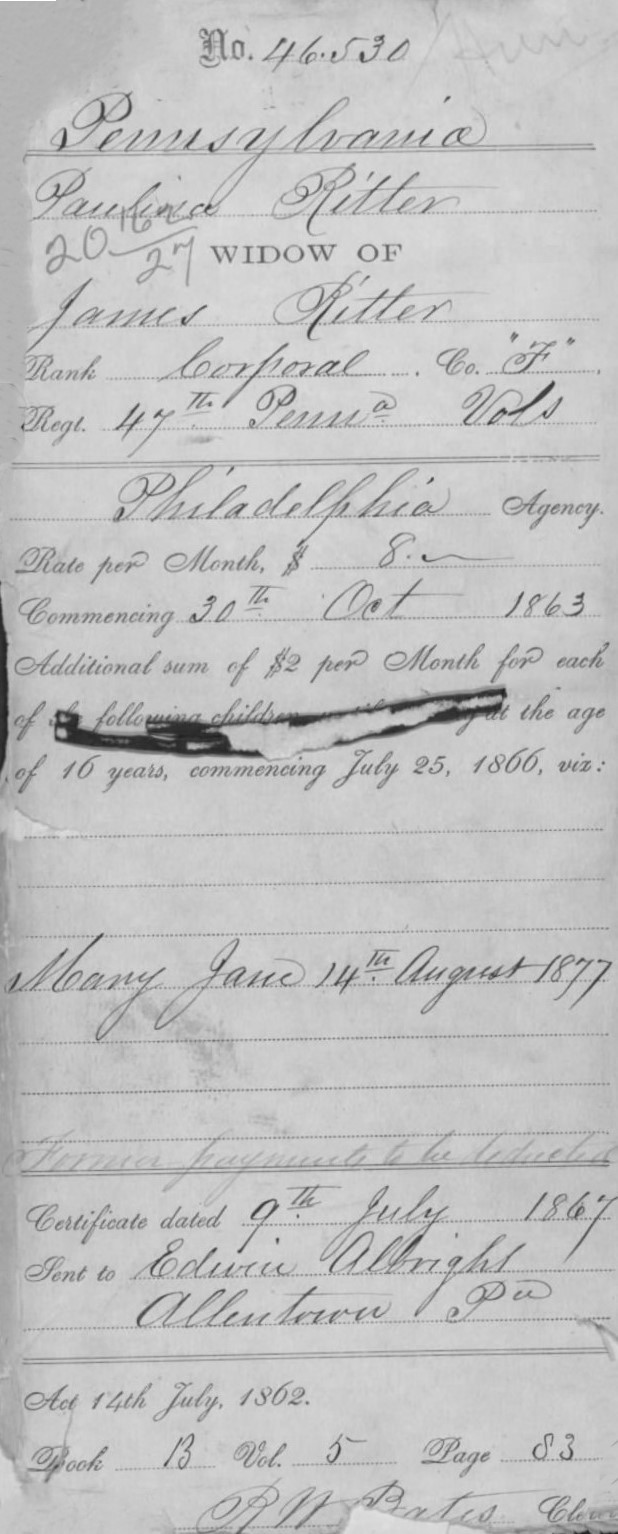 No. 46.530
Pennsylvania
Paulina Ritter
20 162/27 WIDOW OF
James Ritter
Rank Corporal. Co. "F".
Regt. 47th Penna Vols
Philadelphia Agency.
Rate per Month, $ 8.
Commencing 30th Oct 1863
Additional sum of $2 per Month for each
of following children at the age
of 16 years, commencing July 25, 1866, viz:
Mary Jane 14th August 1877
Former payments to be deducted
Certificate dated 9th July 1867
Sent to Edwin Albright
Allentown Pa
Act 14th July, 1862.
Book B Vol. 5 Page 83
R W Bates